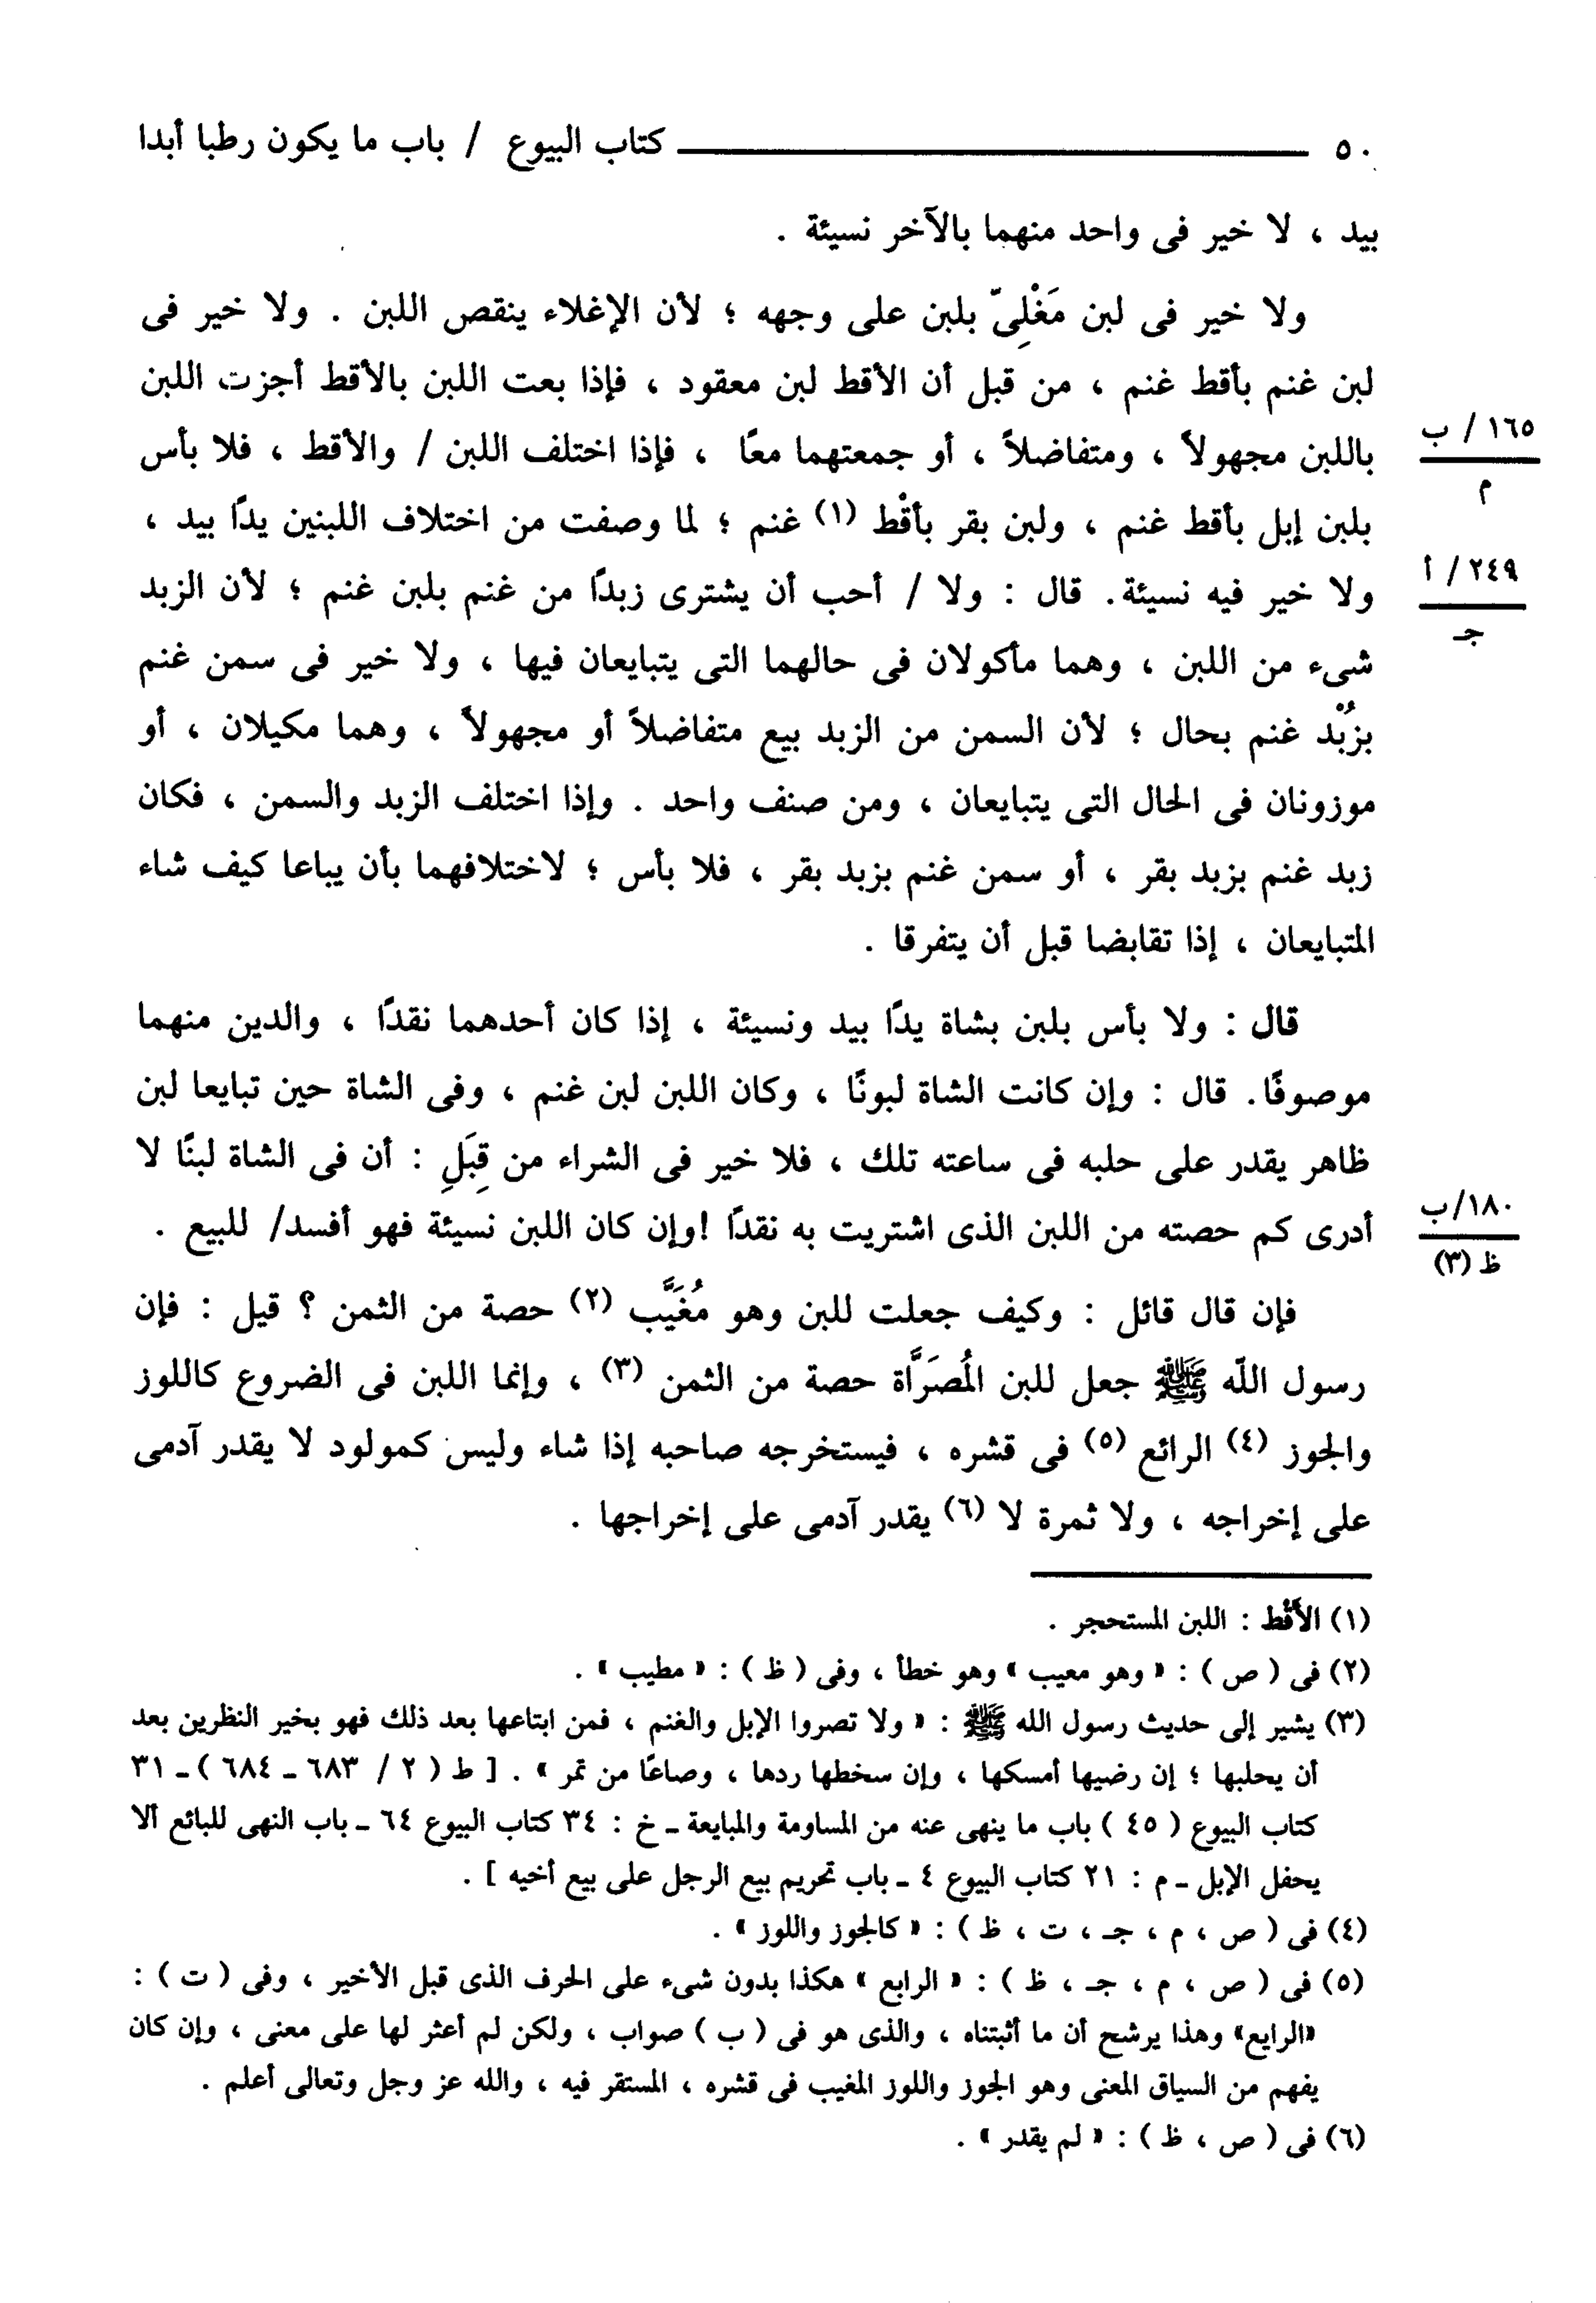 ٥٠ ــــــ كتاب البيوع / باب ما يكون رطبا أبدا
بيد ، لا خير فى واحد منهما بالآخر نسيئة .
ولا خير فى لبن مَغْلِىّ بلبن على وجهه ؛ لأن الإغلاء ينقص اللبن . ولا خير فى
لبن غنم بأقط غنم ، من قبل أن الأقط لبن معقود ، فإذا بعت اللبن بالأقط أجزت اللبن
باللبن مجهولاً ، ومتفاضلاً ، أو جمعتهما معًا ، فإذا اختلف اللبن / والأقط ، فلا بأس
١٦٥ / ب
م
بلبن إبل بأقط غنم ، ولبن بقر بأقْط (١) غنم ؛ لما وصفت من اختلاف اللبنين يدًا بيد ،
ولا خير فيه نسيئة. قال : ولا / أحب أن يشترى زبدًا من غنم بلبن غنم ؛ لأن الزبد
٢٤٩ / أ
جـ
شىء من اللبن ، وهما مأكولان فى حالهما التى يتبايعان فيها ، ولا خير فى سمن غنم
بزُبْد غنم بحال ؛ لأن السمن من الزبد بيع متفاضلاً أو مجهولاً ، وهما مكيلان ، أو
موزونان فى الحال التى يتبايعان ، ومن صنف واحد . وإذا اختلف الزبد والسمن ، فكان
زبد غنم بزبد بقر ، أو سمن غنم بزبد بقر ، فلا بأس ؛ لاختلافهما بأن يباعا كيف شاء
المتبايعان ، إذا تقابضا قبل أن يتفرقا .
قال : ولا بأس بلبن بشاة يدًا بيد ونسيئة ، إذا كان أحدهما نقدًا ، والدين منهما
موصوفًا. قال : وإن كانت الشاة لبونًا ، وكان اللبن لبن غنم ، وفى الشاة حين تبايعا لبن
ظاهر يقدر على حلبه فى ساعته تلك ، فلا خير فى الشراء من قِبَلِ : أن فى الشاة لبنًا لا
أدرى كم حصته من اللبن الذى اشتريت به نقدًا !وإن كان اللبن نسيئة فهو أفسد/ للبيع .
١٨٠/ب
ظ (٣)
فإن قال قائل : وكيف جعلت للبن وهو مُغَيَّب (٢) حصة من الثمن ؟ قيل : فإن
رسول اللّه ﷺ جعل للبن المُصَرَّاة حصة من الثمن (٣) ، وإنما اللبن فى الضروع كاللوز
والجوز (٤) الرائع (٥) فى قشره ، فيستخرجه صاحبه إذا شاء وليس كمولود لا يقدر آدمى
على إخراجه ، ولا ثمرة لا (٦) يقدر آدمى على إخراجها .
(١) الأَقْط : اللبن المستحجر .
(٢) فى ( ص ) : « وهو معيب » وهو خطأ ، وفى ( ظ ) : « مطيب » .
(٣) يشير إلى حديث رسول الله ﷺ : « ولا تصروا الإبل والغنم ، فمن ابتاعها بعد ذلك فهو بخير النظرين بعد
أن يحلبها ؛ إن رضيها أمسكها ، وإن سخطها ردها ، وصاعًا من تمر » . [ ط ( ٢ / ٦٨٣ ـ ٦٨٤ ) ـ ٣١
كتاب البيوع ( ٤٥ ) باب ما ينهى عنه من المساومة والمبايعة ـ خ : ٣٤ كتاب البيوع ٦٤ ـ باب النهى للبائع ألا
يحفل الإبل ـ م : ٢١ كتاب البيوع ٤ ـ باب تحريم بيع الرجل على بيع أخيه ] .
(٤) فى ( ص ، م ، جـ ، ت ، ظ ) : « كالجوز واللوز » .
(٥) فى ( ص ، م ، جـ ، ظ ) : « الرابع » هكذا بدون شىء على الحرف الذى قبل الأخير ، وفى ( ت ) :
«الرايع» وهذا يرشح أن ما أثبتناه ، والذى هو فى ( ب ) صواب ، ولكن لم أعثر لها على معنى ، وإن كان
يفهم من السياق المعنى وهو الجوز واللوز المغيب فى قشره ، المستقر فيه ، والله عز وجل وتعالى أعلم .
(٦) فى ( ص ، ظ ) : « لم يقدر » .